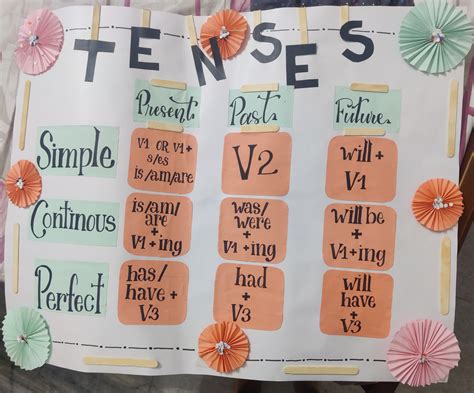 TENSES
Present Past Future
Simple
V1 OR V1+
s/es
is/am/are
V2
will +
V1
Continous
is/am/
are
+
V1+ing
was/
were
+
V1+ing
will be
+
V1+ing
Perfect
has/
have +
V3
had
+
V3
will
have
+
V3